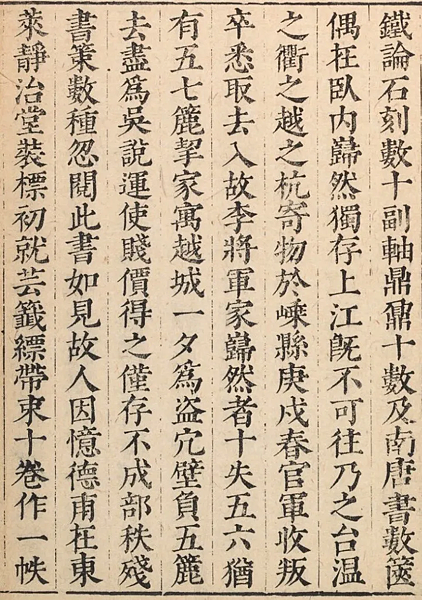 鐵論石刻數十副軸鼎鼐十數及南唐書數篋
偶在臥內巋然獨存上江旣不可往乃之台溫
之衢之越之杭寄物於嵊縣庚戌春官軍收叛
卒悉取去入故李將軍家巋然者十失五六猶
有五七簏挈家寓越城一夕爲盜穴壁負五簏
去盡爲吳說運使賤價得之僅存不成部秩殘
書策數種忽閱此書如見故人因憶德甫在東
萊靜治堂裝標初就芸籤縹帶束十卷作一帙